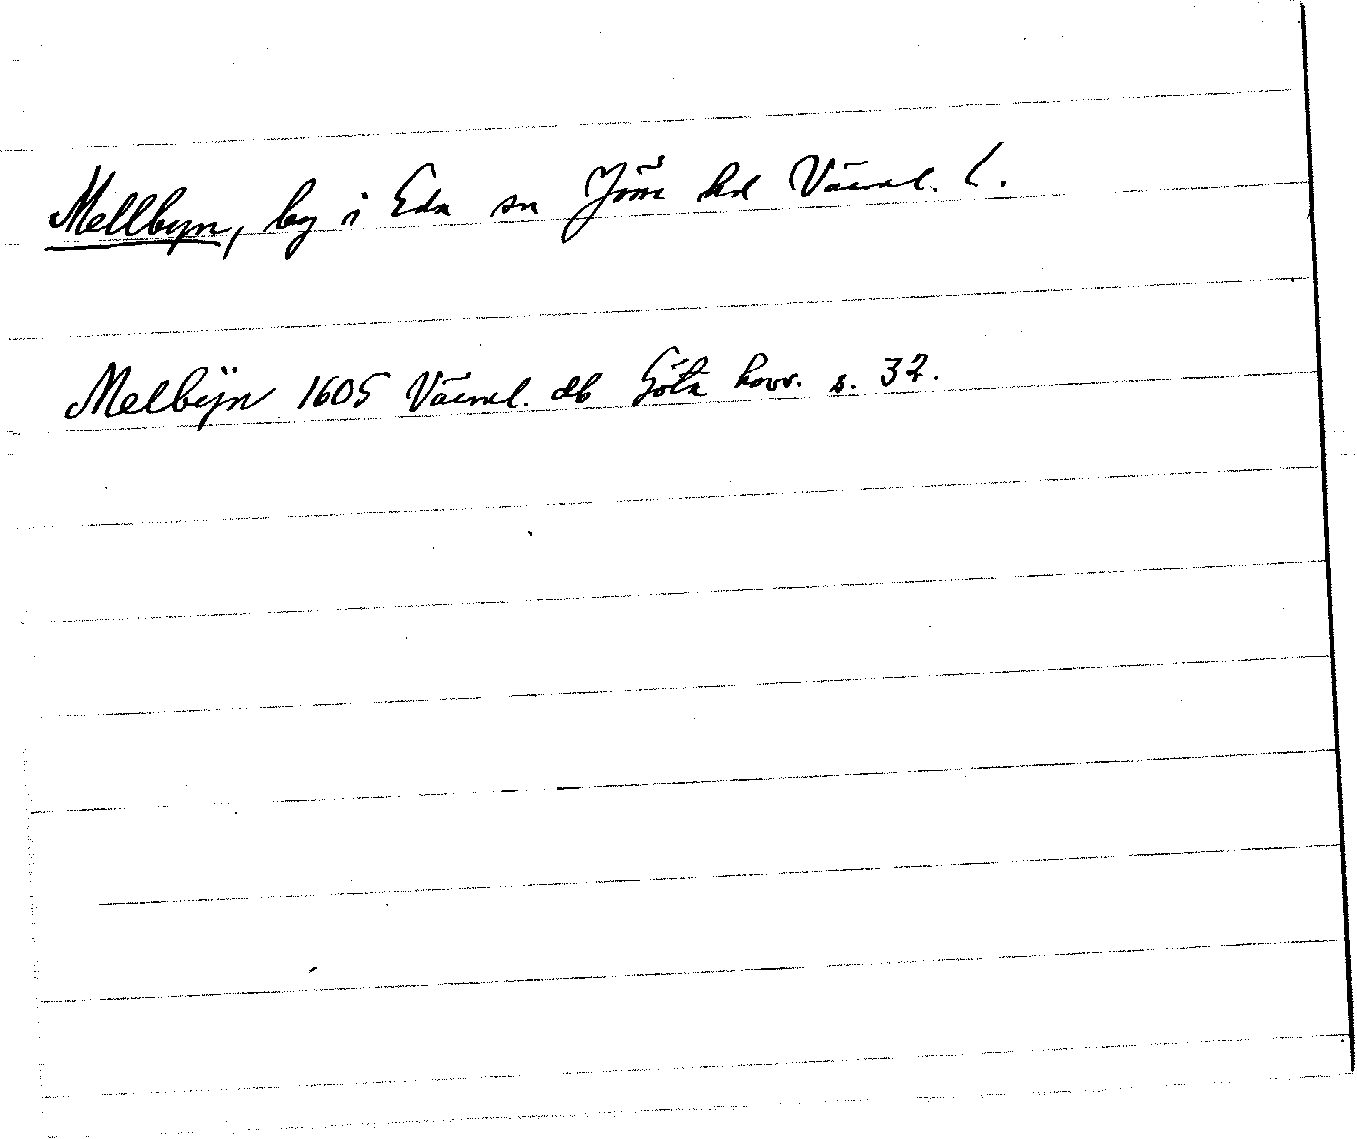 Mellbyn, by i Eda sn Jösse hd Värml. l.
Melbÿn 1605 Värml. db Göta hovr. s. 32.